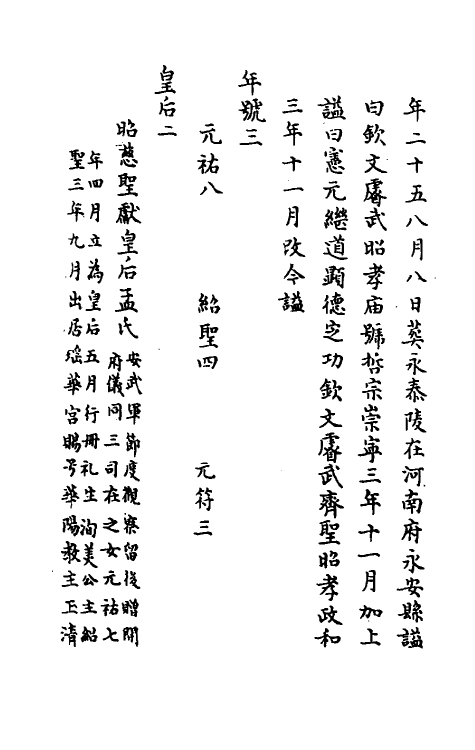 年二十五八月八日葬永泰陵在河南府永安縣謚
曰欽文睿武昭孝庙號哲宗崇寧三年十一月加上
謚曰憲元繼道顯德定功欽文睿武齊聖昭孝政和
三年十一月改今謚
年號三
元祐八　紹聖四　元符三
皇后二
昭慈聖獻皇后孟氏
安武軍節度觀察留後贈開
府儀同三司在之女元祐七
年四月立為皇后五月行冊礼生洵美公主紹
聖三年九月出居瑶華宫賜号華陽教主玉清